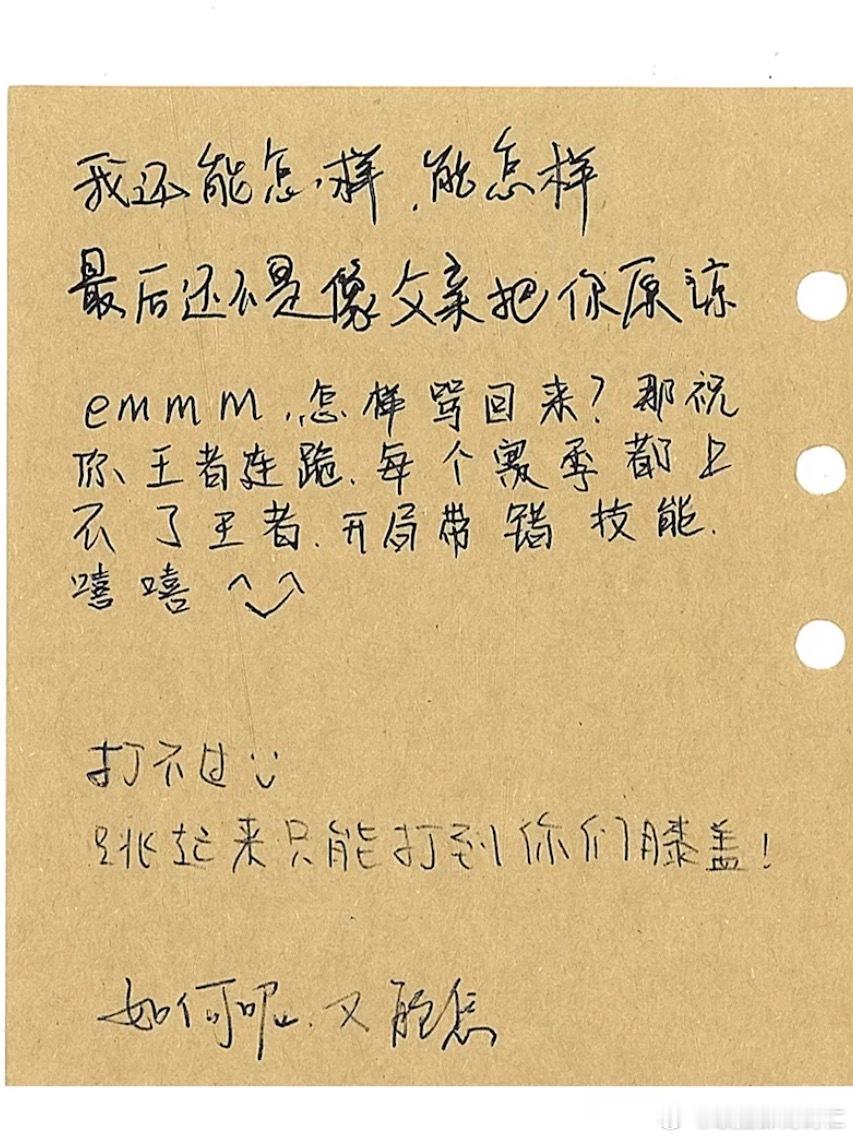 我还能怎样,能怎样
最后还不是像父亲把你原谅
emmm,怎样骂回来?那祝
你王者连跪.每个赛季都上
不了王者.开局带错技能.
嘻嘻^◡^
打不过
跳起来只能打到你们膝盖!
如何呢.又能怎